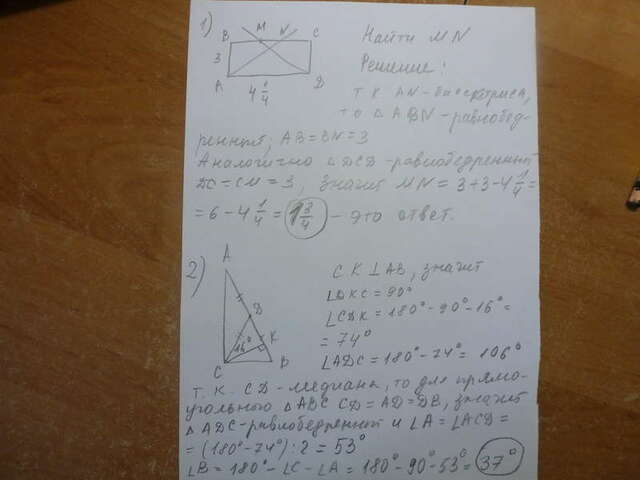 1)
B M N C
3
A D
4 1/4
Найти MN
Решение:
т.к. AN - биссектриса,
то △ABN - равнобед-
ренный, AB = BN = 3
Аналогично △DCD - равнобедренный
DC = CM = 3, значит MN = 3+3-4 1/4 =
= 6 - 4 1/4 = 1 3/4 - это ответ.
2)
A
D
16° K
C B
CK ⊥ AB, значит
∠DKC = 90°
∠CDK = 180° - 90 - 16° =
= 74°
∠ADC = 180° - 74° = 106°
т.к. CD - медиана, то для прямо-
угольного △ABC CD = AD = DB, значит
△ADC - равнобедренный и ∠A = ∠ACD =
= (180° - 74°) : 2 = 53°
∠B = 180° - ∠C - ∠A = 180° - 90 - 53° = 37°